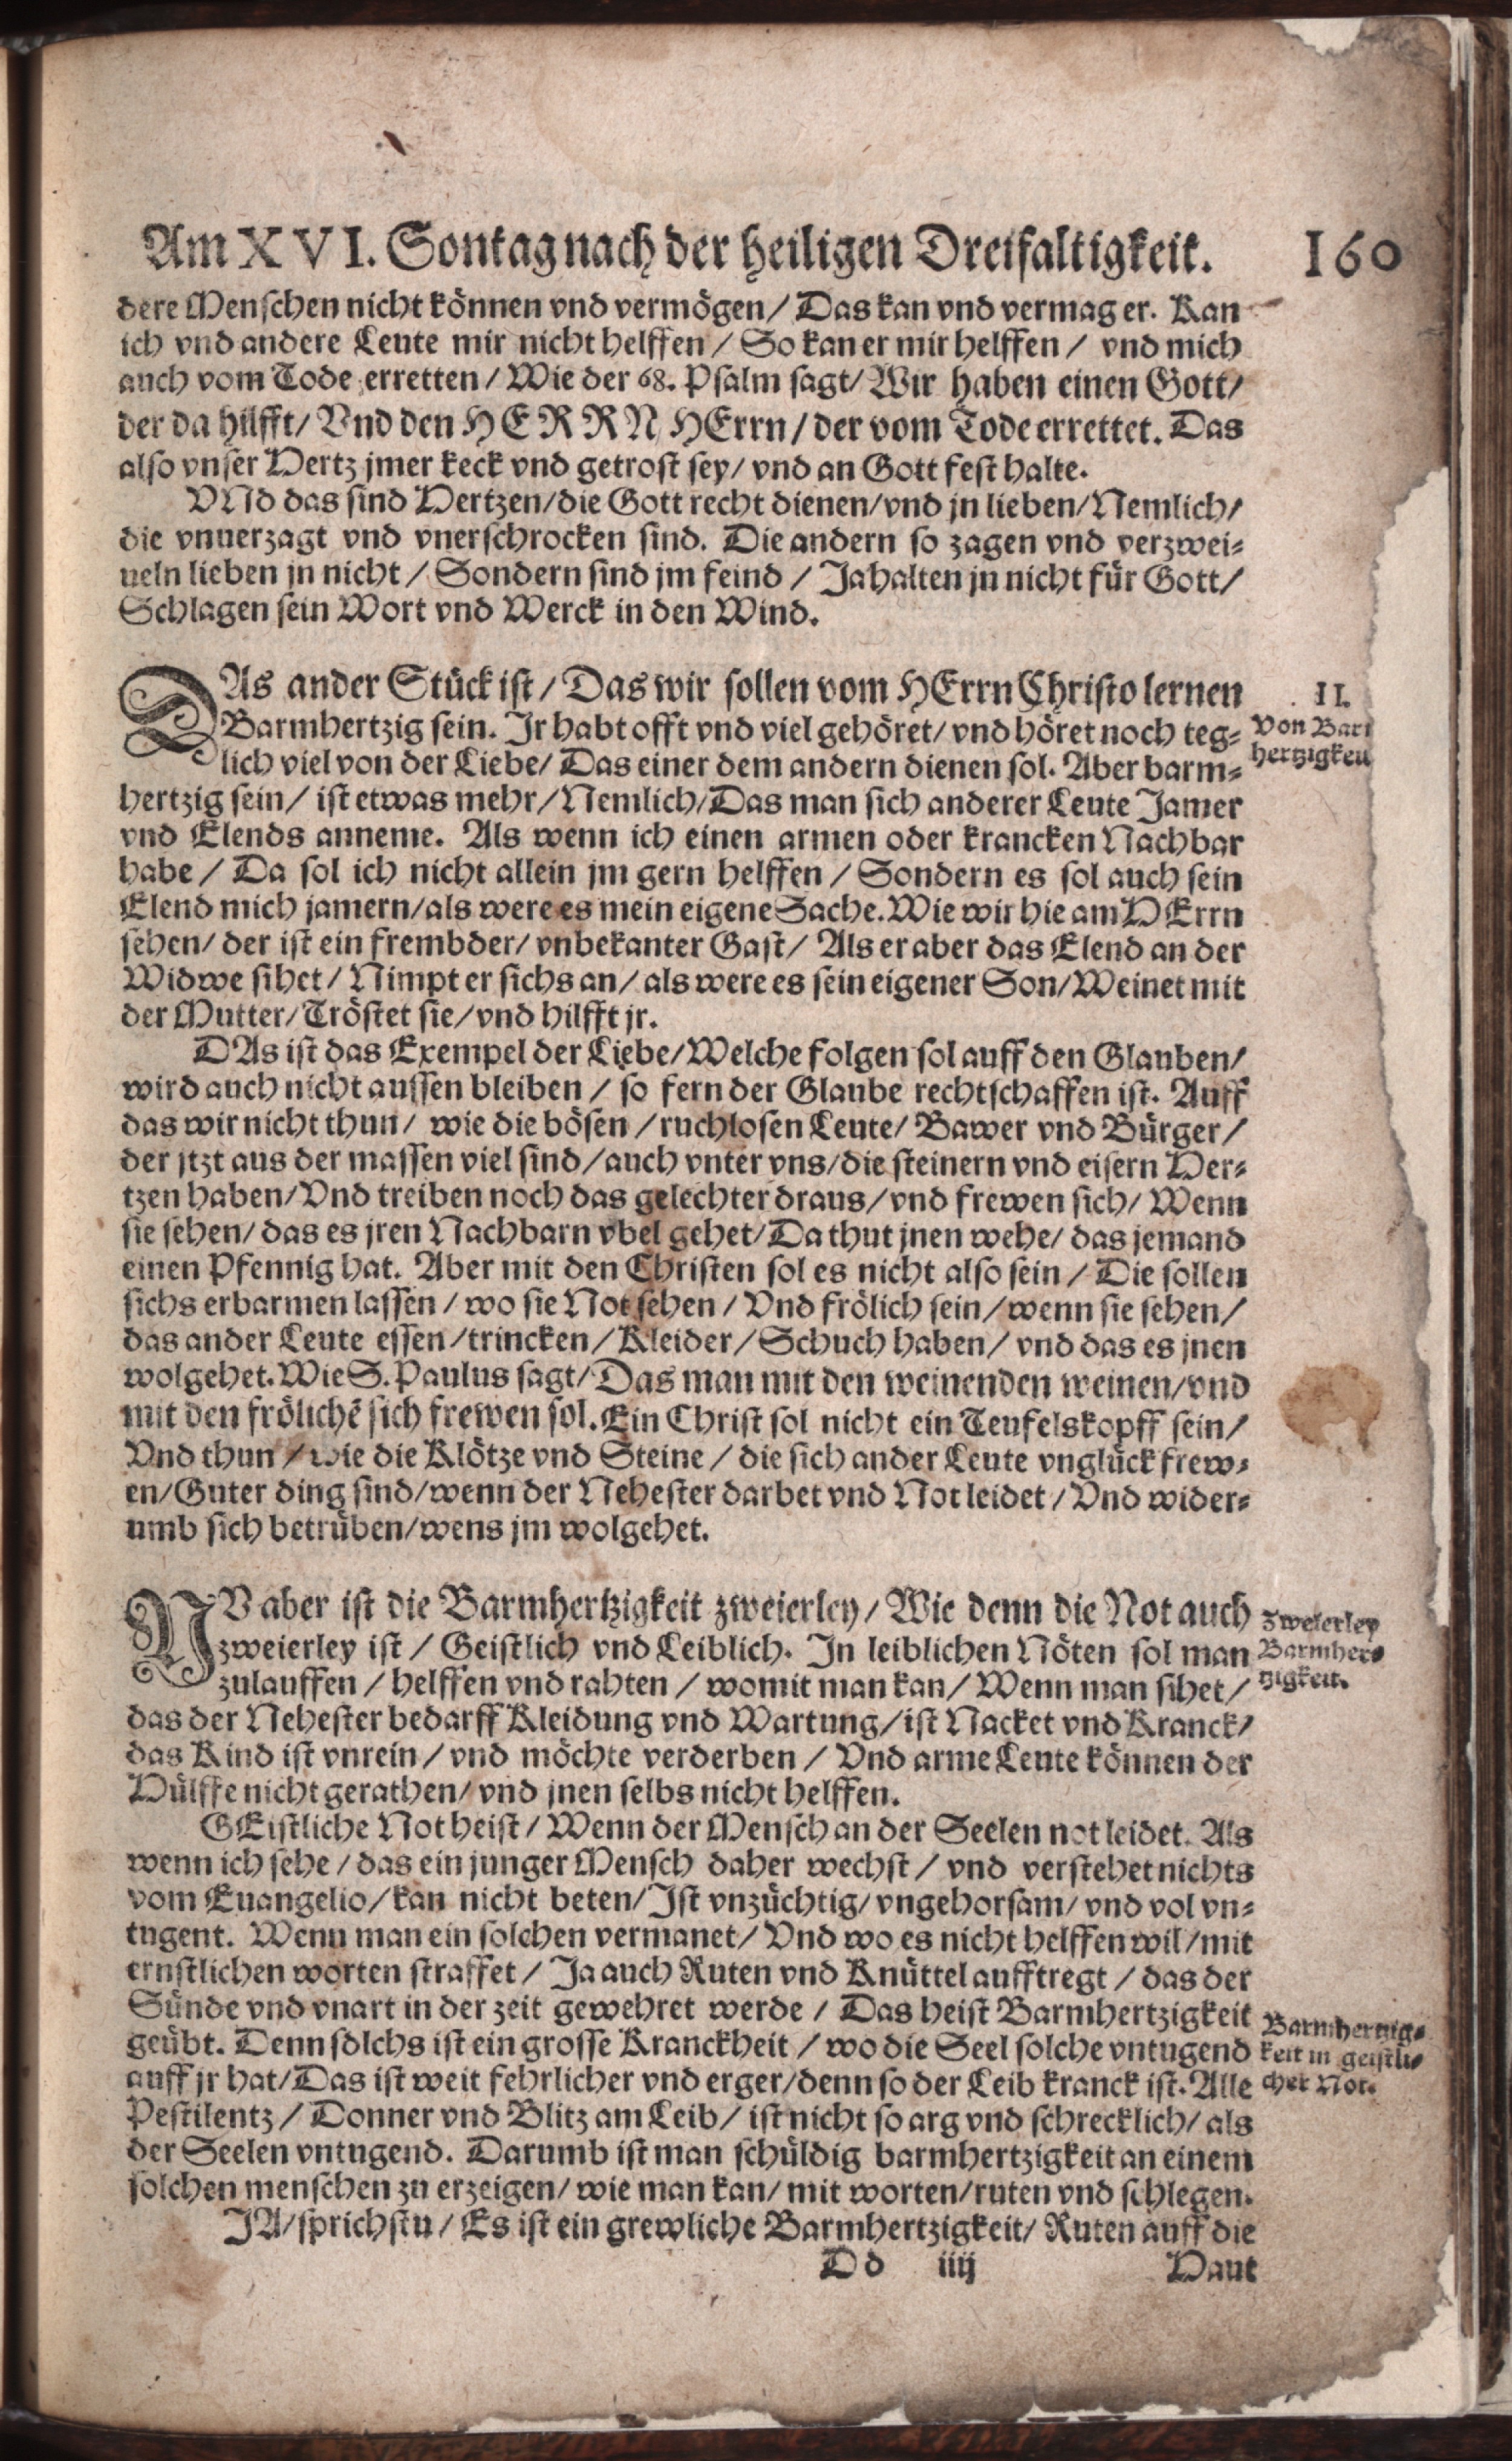 Am XVI. Sontag nach der heiligen Dreifaltigkeit. 160
dere Menschen nicht können vnd vermögen/ Das kan vnd vermag er. Kan
ich vnd andere Leute mir nicht helffen/ So kan er mir helffen/ vnd mich
auch vom Tode erretten/ Wie der 68. Psalm sagt/ Wir haben einen Gott/
der da hilfft/ Vnd den HERRN HErrn/ der vom Tode errettet. Das
also vnser Hertz jmer keck vnd getrost sey/ vnd an Gott fest halte.
VNd das sind Hertzen/ die Gott recht dienen/ vnd jn lieben/ Nemlich/
die vnuerzagt vnd vnerschrocken sind. Die andern so zagen vnd verzwei-
ueln lieben jn nicht/ Sondern sind jm feind/ Ja halten jn nicht für Gott/
Schlagen sein Wort vnd Werck in den Wind.
DAs ander Stück ist/ Das wir sollen vom HErrn Christo lernen
Barmhertzig sein. Jr habt offt vnd viel gehöret/ vnd höret noch teg-
lich viel von der Liebe/ Das einer dem andern dienen sol. Aber barm-
hertzig sein/ ist etwas mehr/ Nemlich/ Das man sich anderer Leute Jamer
vnd Elends anneme. Als wenn ich einen armen oder krancken Nachbar
habe/ Da sol ich nicht allein jm gern helffen/ Sondern es sol auch sein
Elend mich jamern/ als were es mein eigene Sache. Wie wir hie am HErrn
sehen/ der ist ein frembder/ vnbekanter Gast/ Als er aber das Elend an der
Widwe sihet/ Nimpt er sichs an/ als were es sein eigener Son/ Weinet mit
der Mutter/ Tröstet sie/ vnd hilfft jr.
II.
Von Bar
hertzigkeit
DAs ist das Exempel der Liebe/ Welche folgen sol auff den Glauben/
wird auch nicht aussen bleiben/ so fern der Glaube rechtschaffen ist. Auff
das wir nicht thun/ wie die bösen/ ruchlosen Leute/ Bawer vnd Bürger/
der jtzt aus der massen viel sind/ auch vnter vns/ die steinern vnd eisern Her-
tzen haben/ Vnd treiben noch das gelechter draus/ vnd frewen sich/ Wenn
sie sehen/ das es jren Nachbarn vbel gehet/ Da thut jnen wehe/ das jemand
einen Pfennig hat. Aber mit den Christen sol es nicht also sein/ Die sollen
sichs erbarmen lassen/ wo sie Not sehen/ Vnd frölich sein/ wenn sie sehen/
das ander Leute essen/ trincken/ Kleider/ Schuch haben/ vnd das es jnen
wolgehet. Wie S. Paulus sagt/ Das man mit den weinenden weinen/ vnd
mit den frölichē sich frewen sol. Ein Christ sol nicht ein Teufelskopff sein/
Vnd thun/ wie die Klötze vnd Steine/ die sich ander Leute vnglück frew-
en/ Guter ding sind/ wenn der Nehester darbet vnd Not leidet/ Vnd wider-
umb sich betrüben/ wens jm wolgehet.
NV aber ist die Barmhertzigkeit zweierley/ Wie denn die Not auch
zweierley ist/ Geistlich vnd Leiblich. In leiblichen Nöten sol man
zulauffen/ helffen vnd rahten/ womit man kan/ Wenn man sihet/
das der Nehester bedarff Kleidung vnd Wartung/ ist Nacket vnd Kranck/
das Kind ist vnrein/ vnd möchte verderben/ Vnd arme Leute können der
Hülffe nicht gerathen/ vnd jnen selbs nicht helffen.
Zweierley
Barmher-
tzigkeit.
GEistliche Not heist/ Wenn der Mensch an der Seelen not leidet. Als
wenn ich sehe/ das ein junger Mensch daher wechst/ vnd verstehet nichts
vom Euangelio/ kan nicht beten/ Ist vnzüchtig/ vngehorsam/ vnd vol vn-
tugent. Wenn man ein solchen vermanet/ Vnd wo es nicht helffen wil/ mit
ernstlichen worten straffet/ Ja auch Ruten vnd Knüttel aufftregt/ das der
Sünde vnd vnart in der zeit gewehret werde/ Das heist Barmhertzigkeit
geübt. Denn solchs ist ein grosse Kranckheit/ wo die Seel solche vntugend
auff jr hat/ Das ist weit fehrlicher vnd erger/ denn so der Leib kranck ist. Alle
Pestilentz/ Donner vnd Blitz am Leib/ ist nicht so arg vnd schrecklich/ als
der Seelen vntugend. Darumb ist man schüldig barmhertzigkeit an einem
solchen menschen zu erzeigen/ wie man kan/ mit worten/ ruten vnd schlegen.
Barmhertzig-
keit in geistli-
cher Not.
JA/ sprichstu/ Es ist ein grewliche Barmhertzigkeit/ Ruten auff die
Dd iiij Haut